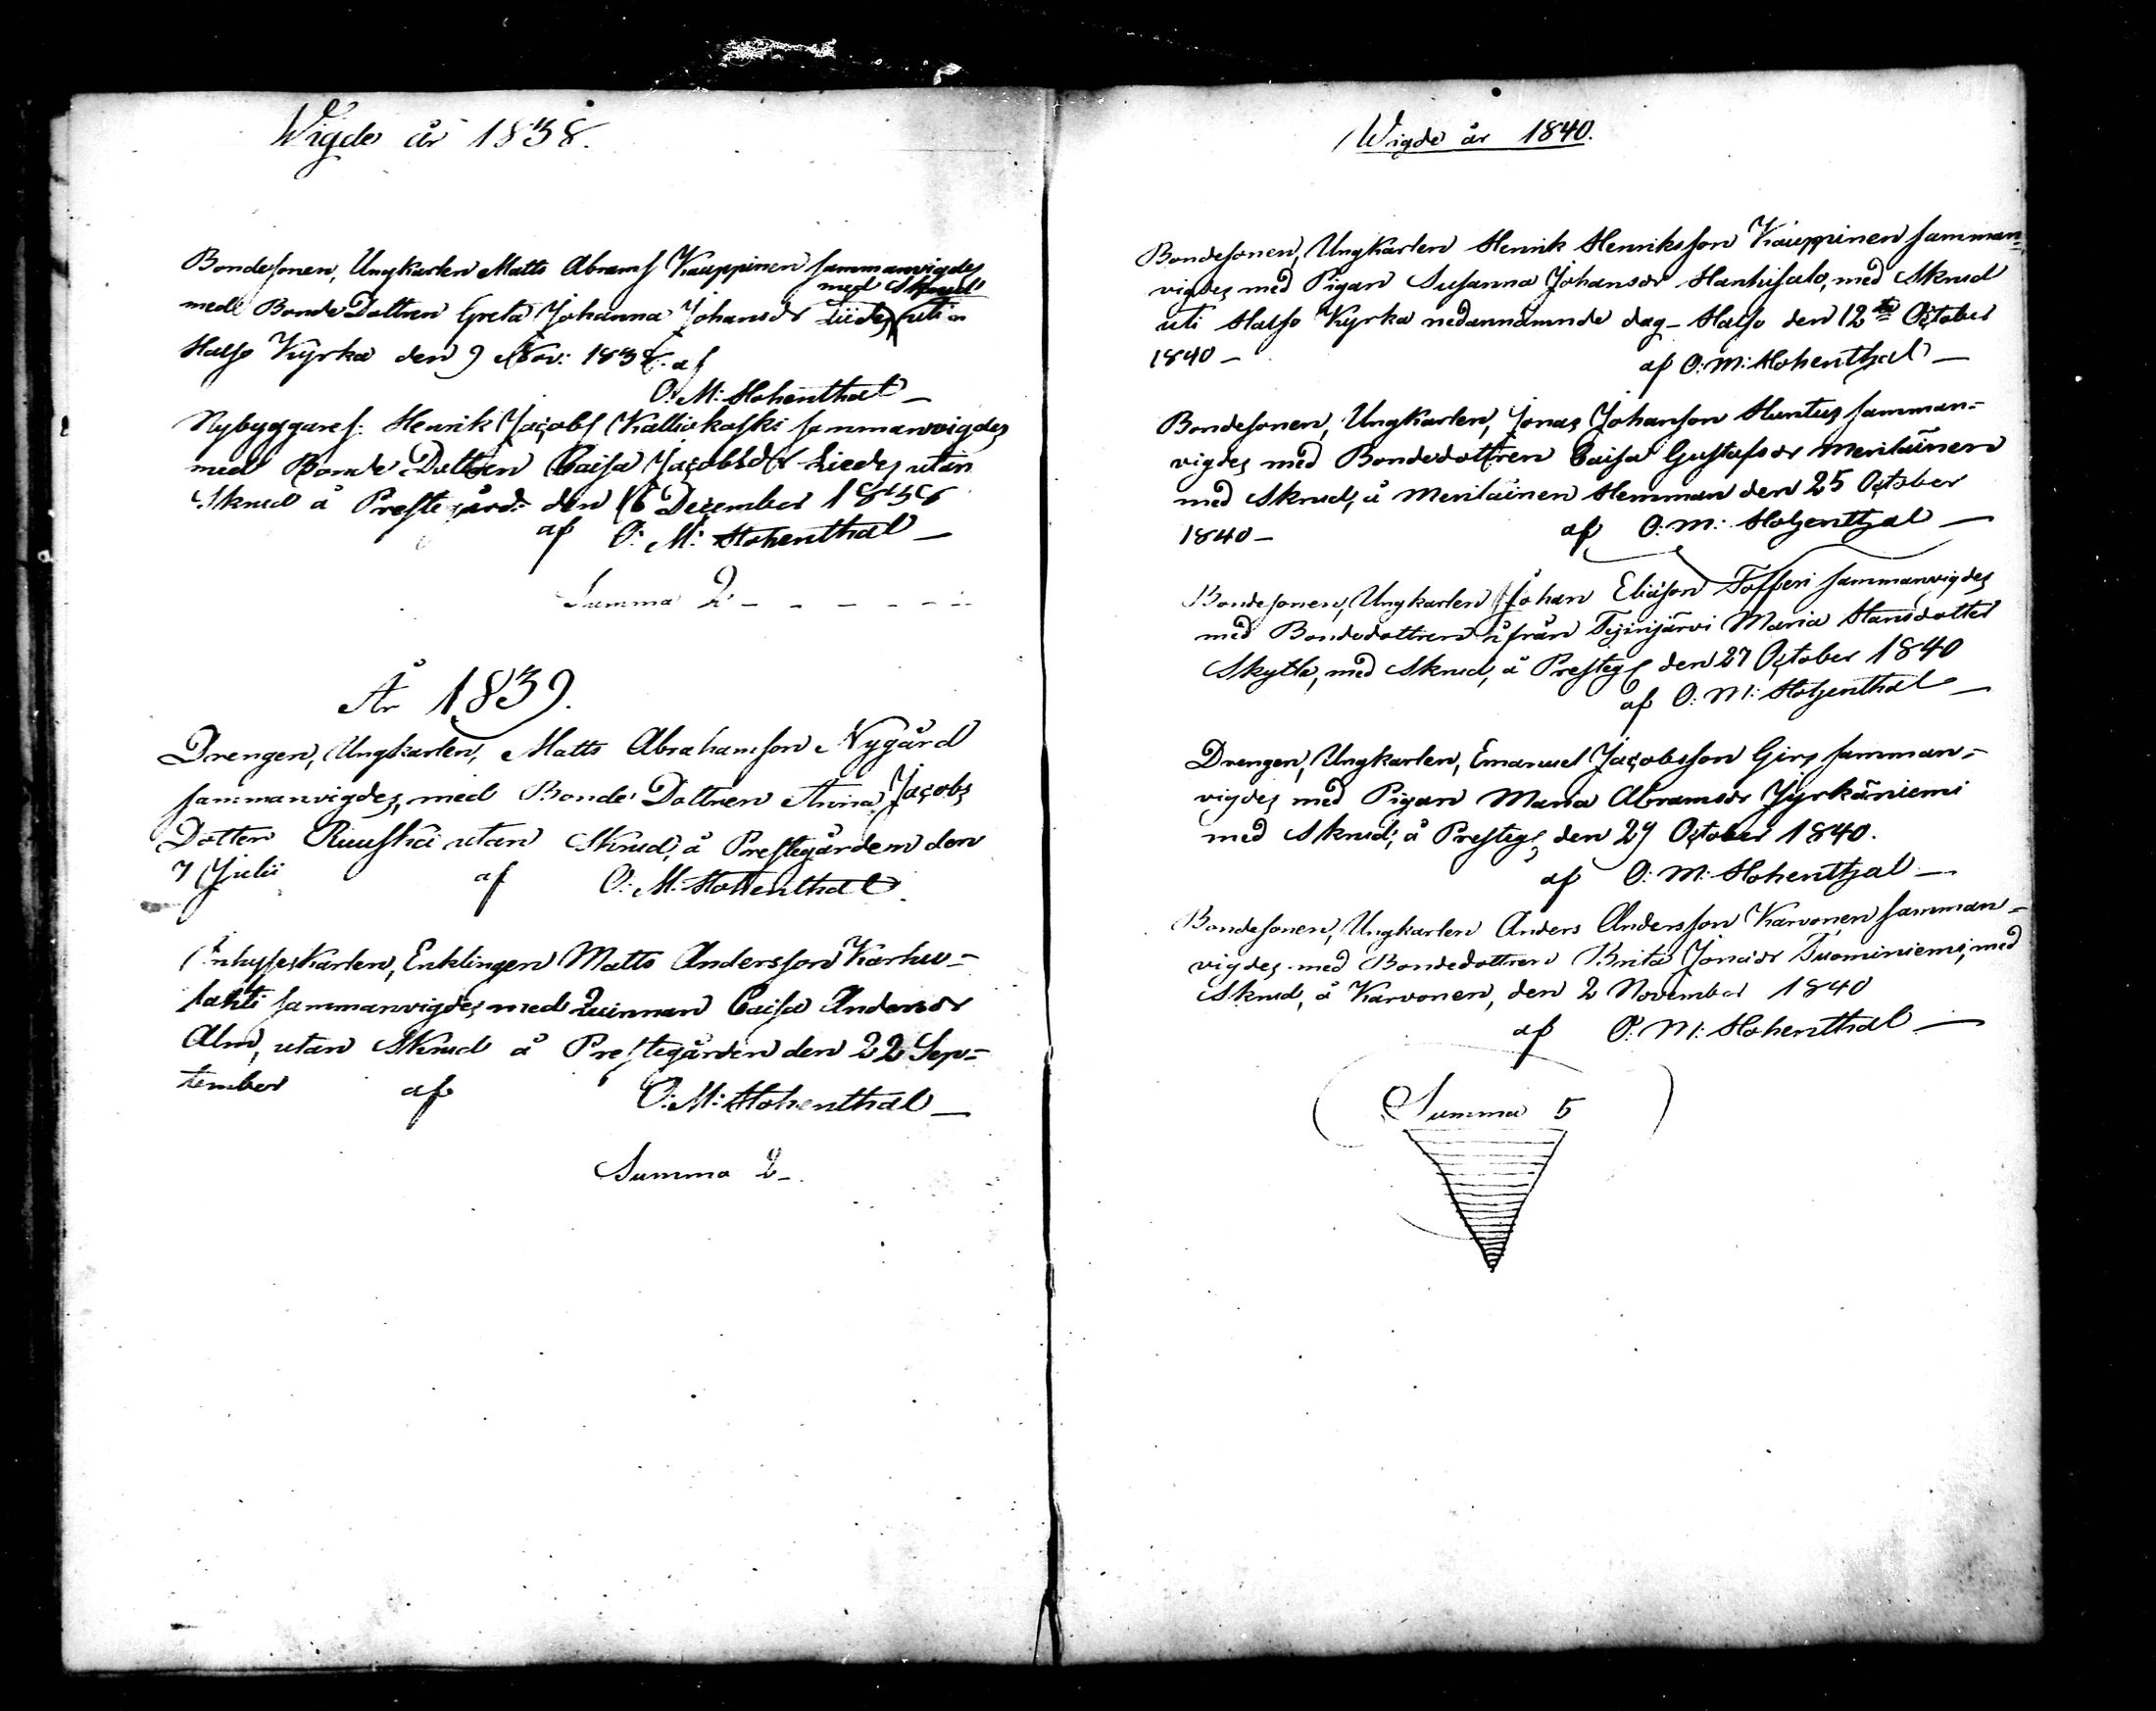 Wigde år 1838.
Bondesonen, Ungkarlen Matts Abrams Kauppinen sammanvigdes
med Skrud
med Bonde Dottren Greta Johanna Johansdr Liedes uti
Halso Kyrka den 9 Nov: 1838. af
O: M: Hohenthal
Nybyggares: Henrik Jacobs Kalliokoski sammanvigdes
med Bonde Dottren Caisa Jacobsdr Liedes utan
Skrud å Prestegård: den 16 December 1838
af O: M: Hohenthal
Summa 2
År 1839.
Drengen, Ungkarlen, Matts Abrahamson Nygård
sammanvigdes, med Bonde Dottren Anna Jacobs
Dotter Ruuska utan Skrud, å Prestegården den
7 Julii af O: M: Hohenthal
Inhyses Karlen, Enklingen Matts Andersson Karhu-
lahti sammanvigdes med Quinnan Caisa Andersdr
Alm, utan Skrud å Prestegården den 22 Sep-
tember af O: M: Hohenthal
Summa 2
Wigde år 1840.
Bondesonen, Ungkarlen Henrik Henriksson Kauppinen samman-
vigdes med Pigan Susanna Johansdr Hanhisalo, med Skrud
uti Halso Kyrka nedannämnde dag - Halso den 12te October
1840 - af O: M: Hohenthal
Bondesonen, Ungkarlen, Jonas Johanson Huntus samman-
vigdes med Bondedottren Caisa Gustafsdr Meriläinen
med Skrud, å Meriläinen Hemman den 25 October
1840 - af O: M: Hohenthal
Bondesonen, Ungkarlen Johan Eliäson Tofferi sammanvigdes
med Bondedottren ifrån Pijrijärvi Maria Hansdotter
Skytte, med Skrud, å Presteg den 27 October 1840
af O: M: Hohenthal
Drengen, Ungkarlen, Emanuel Jacobsson Girs samman-
vigdes med Pigan Maria Abramsdr Jyrkäniemi
med Skrud, å Presteg den 29 October 1840.
af O: M: Hohenthal
Bondesonen, Ungkarlen Anders Andersson Karvonen samman-
vigdes med Bondedottren Brita Jonasdr Tuominiemi, med
Skrud, å Karvonen, den 2 November 1840
af O: M: Hohenthal
Summa 5